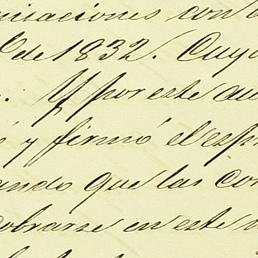 niaciones con
de 1832. Cuyo
. Y por este
y firmó el esp
ando que las con
obrarse en este